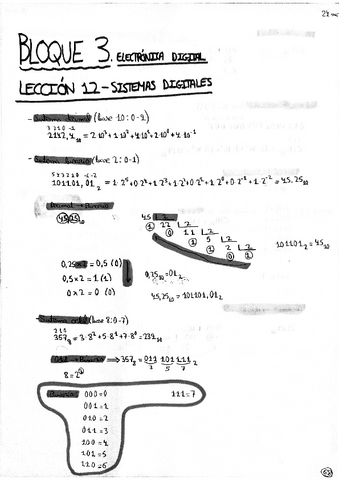 BLOQUE 3. ELECTRÓNICA DIGITAL
LECCIÓN 12 - SISTEMAS DIGITALES
- Sistema decimal (base 10: 0-9)
3 2 1 0 -1
2142,4₁₀ = 2·10³ + 1·10² + 4·10¹ + 2·10⁰ + 4·10⁻¹
- Sistema binario (base 2: 0-1)
5 4 3 2 1 0 -1 -2
101101,01₂ = 1·2⁵ + 0·2⁴ + 1·2³ + 1·2² + 0·2¹ + 1·2⁰ + 0·2⁻¹ + 1·2⁻² = 45,25₁₀
Decimal → Binario
45,25₁₀
45 2
1 22 2
0 11 2
1 5 2
1 2 2
0 1
101101₂ = 45₁₀
0,25×2 = 0,5 (0)
0,5×2 = 1 (1)
0×2 = 0 (0)
0,25₁₀ = 01₂
45,25₁₀ = 101101,01₂
- Sistema octal (base 8: 0-7)
2 1 0
357₈ = 3·8² + 5·8¹ + 7·8⁰ = 239₁₀
Octal → Binario ⟹ 357₈ = 011 101 111₂
3 5 7
8 = 2³
Binario
000 = 0
001 = 1
010 = 2
011 = 3
100 = 4
101 = 5
110 = 6
111 = 7